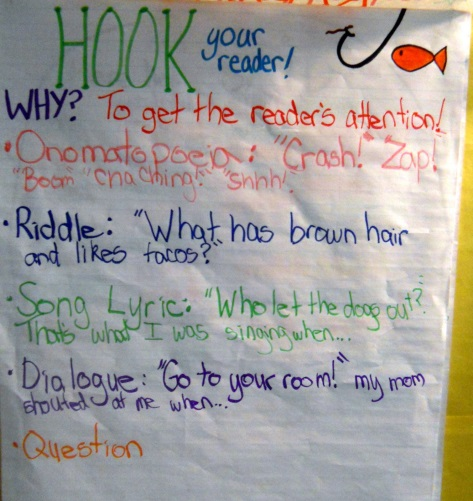 HOOK your reader!
WHY? To get the reader's attention!
• Onomatopoeia: "Crash!" Zap!
"Boom" "Cha Ching!" "Shhh!
• Riddle: "What has brown hair
and likes tacos?"
• Song Lyric: "Who let the dogs out"?
That's what I was singing when...
• Dialogue: "Go to your room!" my mom
shouted at me when...
• Question